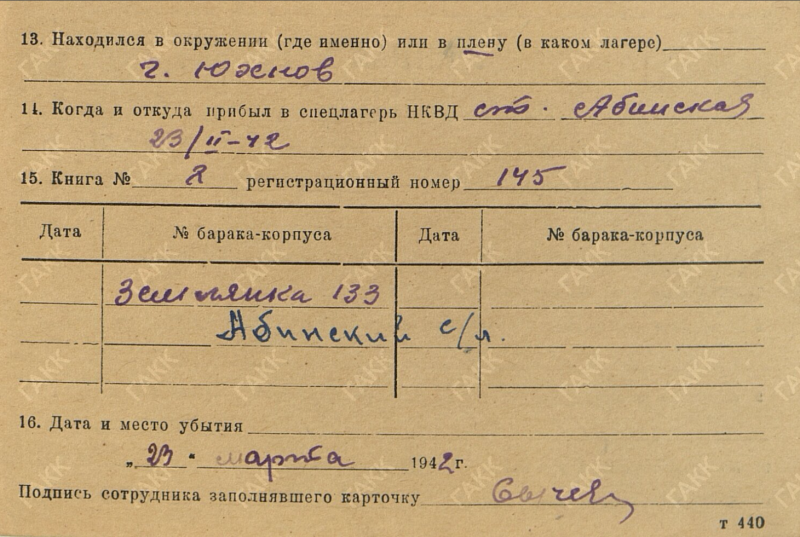 13. Находился в окружении (где именно) или в плену (в каком лагере)
г. Юхнов
14. Когда и откуда прибыл в спецлагерь НКВД ст. Абинская
23/II-42
15. Книга № 2 регистрационный номер 145
Дата № барака-корпуса Дата № барака-корпуса
Землянка 133
Абинский с/л.
16. Дата и место убытия
„23" марта 1942 г.
Подпись сотрудника заполнявшего карточку
т 440
ГАКК